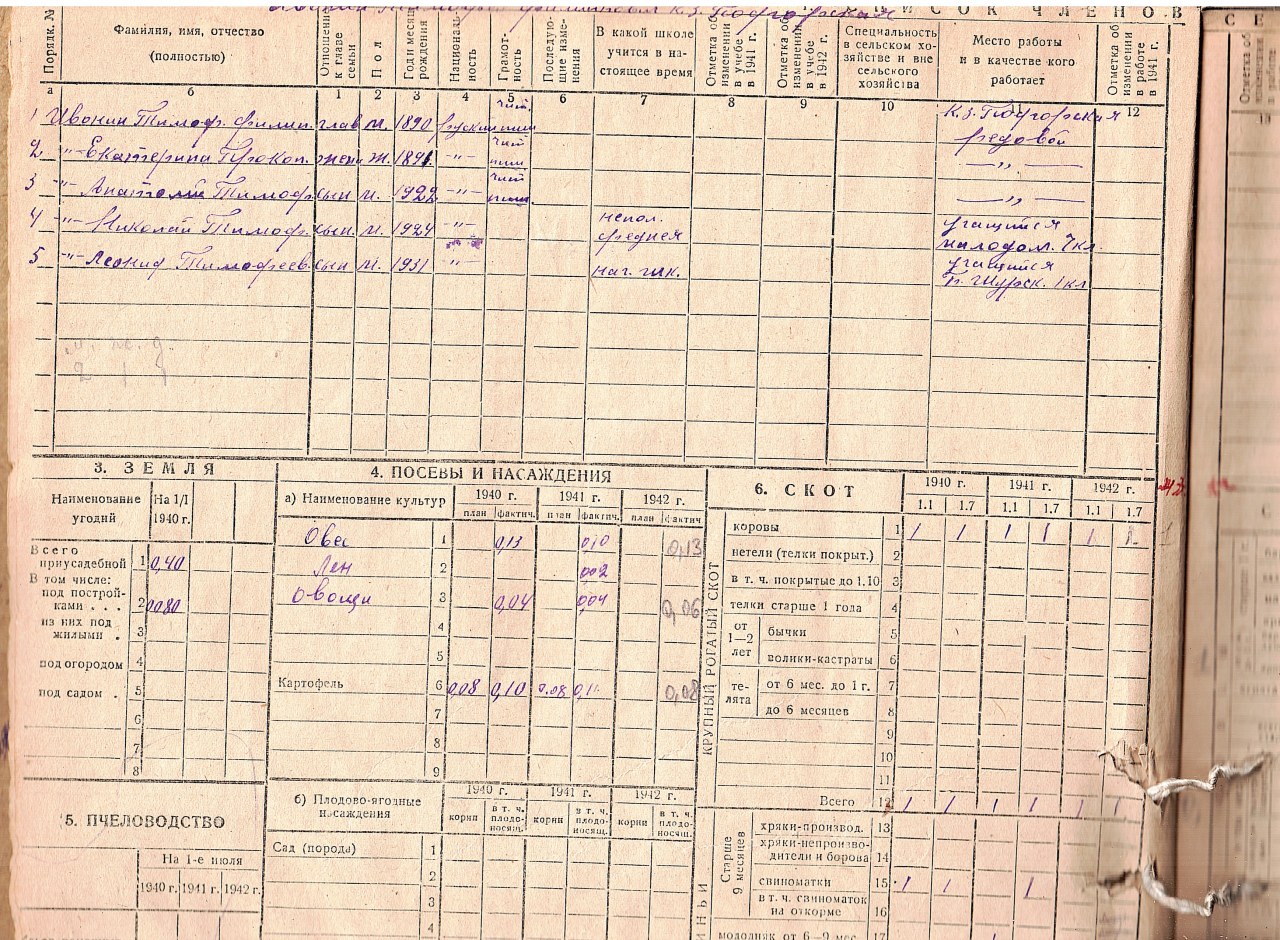 Ивонин Тимофей Филиппов к.з. Подгорская
СПИСОК ЧЛЕНОВ
СЕ
Порядк. №
Фамилия, имя, отчество
(полностью)
Отношение к главе семьи
Пол
Год и месяц рождения
Национальность
Грамотность
Последующие изменения
В какой школе учится в настоящее время
Отметка об изменении в учебе в 1941 г.
Отметка об изменении в учебе в 1942 г.
Специальность в сельском хозяйстве и вне сельского хозяйства
Место работы и в качестве кого работает
Отметка об изменении в работе в 1941 г.
а б 1 2 3 4 5 6 7 8 9 10 12 13
1 Ивонин Тимоф. Филип. глав м. 1890 русский чит. пиш К.з. Подгорская рядовой
2 -"- Екатерина Прокоп. жена ж. 1891. -"- чит пиш — " —
3 -"- Анатолий Тимоф. сын м. 1922 -"- чит пиш. — " —
4 -"- Николай Тимоф. сын. м. 1924 -"- непол. средняя учащийся 7 кл.
5 -"- Леонид Тимофеев. сын м. 1931 -"- нач. шк. учащийся 1 кл
3. ЗЕМЛЯ
Наименование угодий
На 1/I 1940 г.
Всего приусадебной 1 0,40
В том числе:
под постройками . . . 2 0080
из них под жилыми . 3
под огородом 4
под садом . 5
6
7
8
4. ПОСЕВЫ И НАСАЖДЕНИЯ
а) Наименование культур
1940 г. 1941 г. 1942 г.
план фактич. план фактич. план фактич
Овес 1 0,13 0,10 0,13
Лен 2 002
Овощи 3 0,04 0,04 0,06
4
5
Картофель 6 0,08 0,10 0,08 0,08
7
8
9
б) Плодово-ягодные насаждения
1940 г. 1941 г. 1942 г.
корни в т. ч. плодоносящ. корни в т. ч. плодоносящ. корни в т. ч. плодоносящ.
Сад (порода) 1
2
3
4
5. ПЧЕЛОВОДСТВО
На 1-е июля
1940 г. 1941 г. 1942 г.
6. СКОТ
1940 г. 1941 г. 1942 г.
1.1 1.7 1.1 1.7 1.1 1.7
КРУПНЫЙ РОГАТЫЙ СКОТ
коровы 1 1 1 1 1 1 1
нетели (телки покрыт.) 2
в т. ч. покрытые до 1.10 3
телки старше 1 года 4
от 1—2 лет
бычки 5
волики-кастраты 6
телята
от 6 мес. до 1 г. 7
до 6 месяцев 8
9
10
11
Всего 12 1 1 1 1 1 1
Старше 9 месяцев
хряки-производ. 13
хряки-непроизводители и борова 14
свиноматки 15 1 1 1
в т. ч. свиноматок на откорме 16
молодняк от 6—9 мес. 17